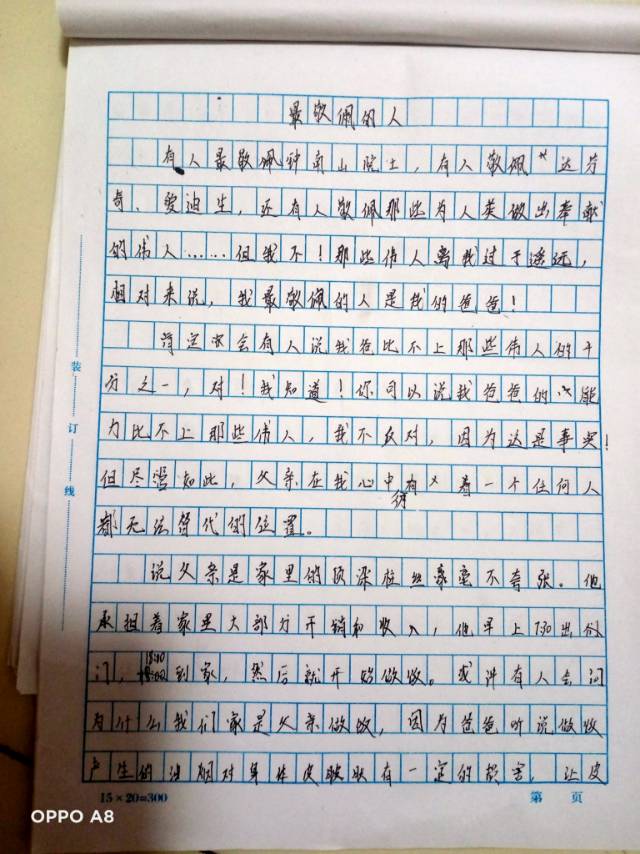 最敬佩的人
有人最敬佩钟南山院士，有人敬佩达芬
奇、爱迪生，还有人敬佩那些为人类做出奉献
的伟人……但我不！那些伟人离我过于遥远，
相对来说，我最敬佩的人是我的爸爸！
肯定会有人说我爸比不上那些伟人的千
万之一，对！我知道！你可以说我爸爸的能
力比不上那些伟人，我不反对，因为这是事实！
但尽管如此，父亲在我心中有着一个任何人
都无法替代的位置。
说父亲是家里的顶梁柱丝毫不夸张。他
承担着家里大部分开销和收入，他早上7:30出
门，18:40到家，然后就开始做饭。或许有人会问
为什么我们家是父亲做饭，因为爸爸听说做饭
产生的油烟对身体皮肤有一定的损害，让皮
装
订
线
15×20=300
第 页
OPPO A8